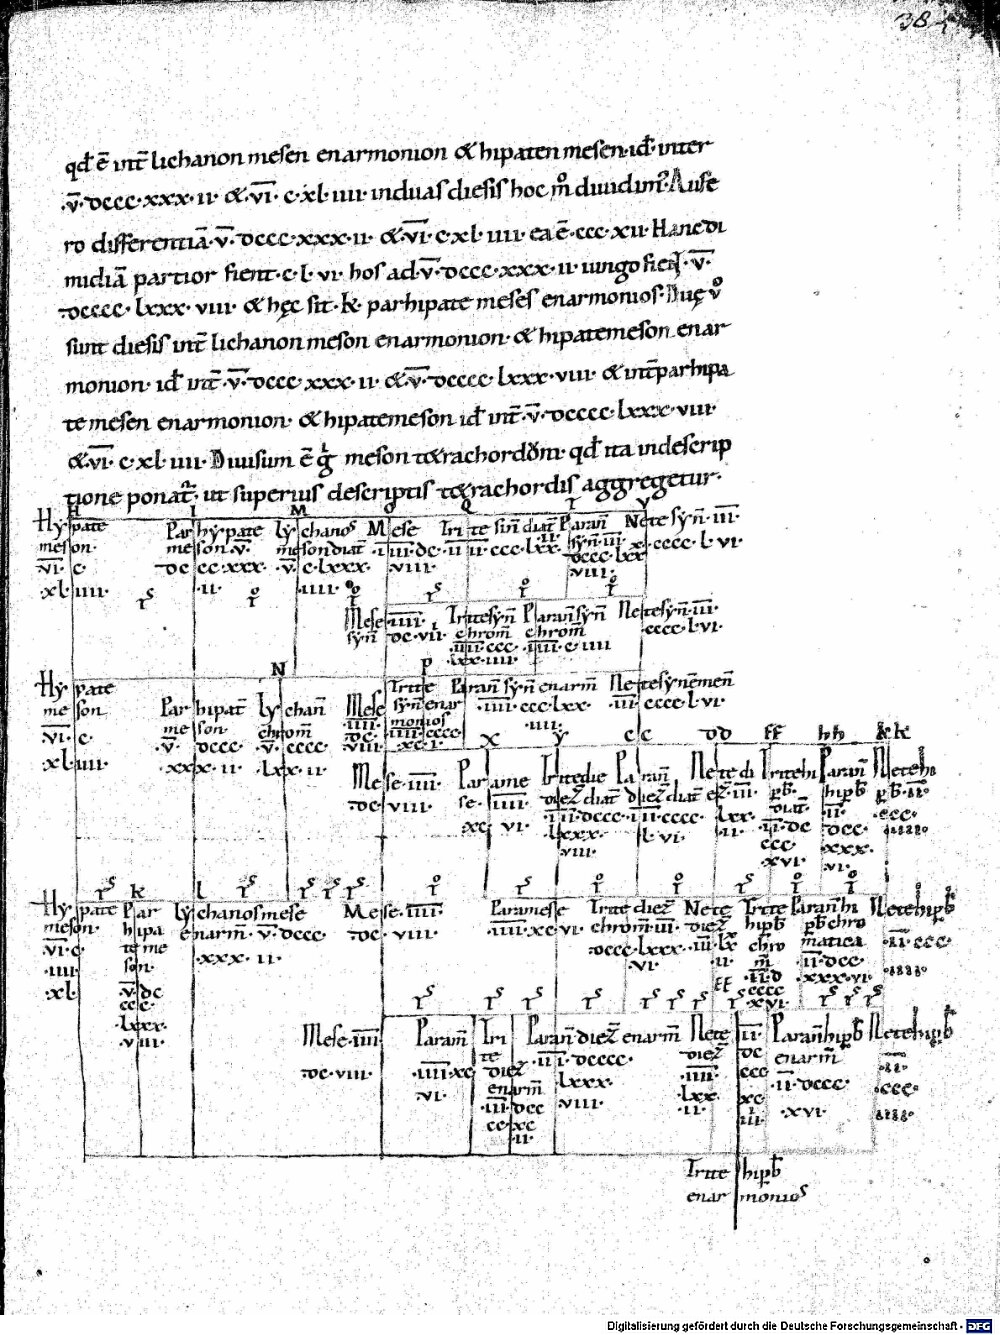 38
qd̄ ē int̄ lichanon mesen enarmonion & hipaten mesen· id̄· inter
·v̅· dccc·xxx·ii· & ·vi̅· c·xl·iiii· induas diesis hoc m̊ diuidim᷒· Aufe
ro differentiā· v̅· dccc·xxx·ii· &·vi̅· c·xl·iiii· ea ē·ccc·xii· Hanc di
midiā partior fient·c·l·vi· hos ad·v̅·dccc·xxx·ii· iungo fient·v̅·
·dcccc·lxxx·viii· & hęc sit·k· parhipate meses enarmonios· Duę v̊
sunt diesis int̄ lichanon meson enarmonion· & hipatemeson enar
monion· id̄ int̄·v̅·dccc·xxx·ii· &·v̅·dcccc·lxxx·viii· & int̄ parhipa
te mesen enarmonion· & hipatemeson id̄ int̄·v̅·dcccc·lxxx·viii·
&·vi̅·c·xl·iiii· Diuisum ē g̊ meson tetrachordōn· qd̄ ita indescrip
tione ponat᷒· ut superius descriptis tetrachordis aggregetur·
H I M O Q T V
Hẏpate meson· vi̅· c· ·xl·iiii·
Parhẏpate meson·v̅· dcccc·xxx· ·ii·
lẏchanos mesondiat̄ ·v̅· c·lxxx· ·iiii·
Mese ·iiii̅·dc· viii·
Trite sin̄ diat̄
Paran̄ sẏn̄·iii̅ dcccc·lxx viii·
Nete sẏn̄·iii̅· ·cccc·l·vi·
Mese sẏn̄ ·iiii̅· dc·viii·
Tritesẏn̄ chrom̄ ·iiii̅·ccc· lxx·iiii·
Paran̄sẏn̄ chrom̄ ·iiii̅·c·iiii
Netesẏn̄·iii̅· ·cccc·l·vi·
N P
Hẏpate meson vi̅· c· ·xl·iiii·
Parhipat̄ meson· ·v̅· dccc· ·xxx·ii·
lẏchan̄ chrom̄ ·v̅· cccc· ·lxx·ii·
Mese ·iiii̅· dc· viii·
Trite sẏn̄ enar monios iiii̅·cccc ·xc·i·
Paran̄ sẏn̄ enarm̄ ·iiii̅·ccc·lxx ·iiii·
Netesẏnēmen̄ ·iii̅ cccc·l·vi·
X Y CC DD FF HH KK
Mese·iiii̅· dc·viii·
Paramese·iiii̅· xc vi·
Tritedie diez̄ diat̄ ·iii̅·dccc· lxxx· viii·
Paran̄ diez̄ diat̄ ·iii̅·cccc· ·l·vi·
Nete di ez̄·iii̅· lxx· ·ii·
Tritehi ꝑb̄· diat̄· ·ii̅·dc ccc· ·xvi·
Paran̄ hiꝑb̄ ·ii̅· dcc· xxx· ·vi·
Netehi ꝑb̄·ii̅· ·ccc· ·iiii·
k l
Hẏpate meson· vi̅·c· ·iiii· ·xl·
Parhipa te me son· ·v̅·dc ccc· ·lxxx· ·viii·
lẏchanos mese enarm̄·v̅·dccc ·xxx·ii·
Mese·iiii̅· dc·viii·
Paramese ·iiii̅·xc·vi·
Trite diez̄ chrom̄·iii̅· ·dccc·lxxx· ·vi·
Nete diez̄ ·iii̅·lx ii·
Trite hiꝑb̄ chro m̄ ·ii̅·d cccc ·xvi·
Paran̄hi ꝑb̄ chro matica ·ii̅·dcc ·xxx·vi·
Netehiꝑb̄ ·ii̅·ccc· ·iiii·
Mese·iiii̅ ·dc·viii·
Param̄ ·iiii̅·xc ·vi·
Trite diez̄ enarm̄ ·iii̅·dcc cc·xc ii·
Paran̄ diez̄ enarm̄ ·iii̅·dcccc· ·lxxx· viii·
Nete diez̄ ·iii̅· ·lxx· ·ii·
·ii̅· dc ccc xc iii·
Paran̄hiꝑb̄ enarm̄ ·ii̅·dccc· ·xvi·
Netehiꝑb̄ ·ii̅· ·ccc· ·iiii·
Trite hiꝑb̄
enar monios
Digitalisierung gefördert durch die Deutsche Forschungsgemeinschaft - DFG